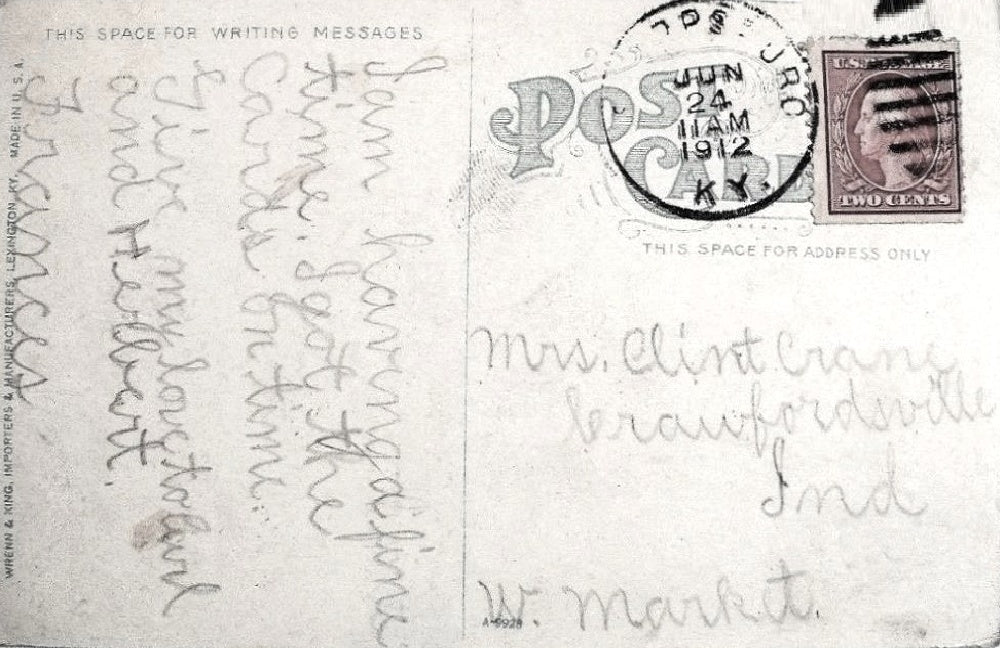 THIS SPACE FOR WRITING MESSAGES
I am having a fine
time. I got the
Cards on time.
Give my love to
and Herbert.
Frances
WRENN & KING, IMPORTERS & MANUFACTURERS, LEXINGTON, KY. MADE IN U.S.A.
POST CARD
JUN
24
11 AM
1912
KY.
U.S. POSTAGE
TWO CENTS
THIS SPACE FOR ADDRESS ONLY
Mrs. Clint Crane
Crawfordsville
Ind
W. Market.
A-9928